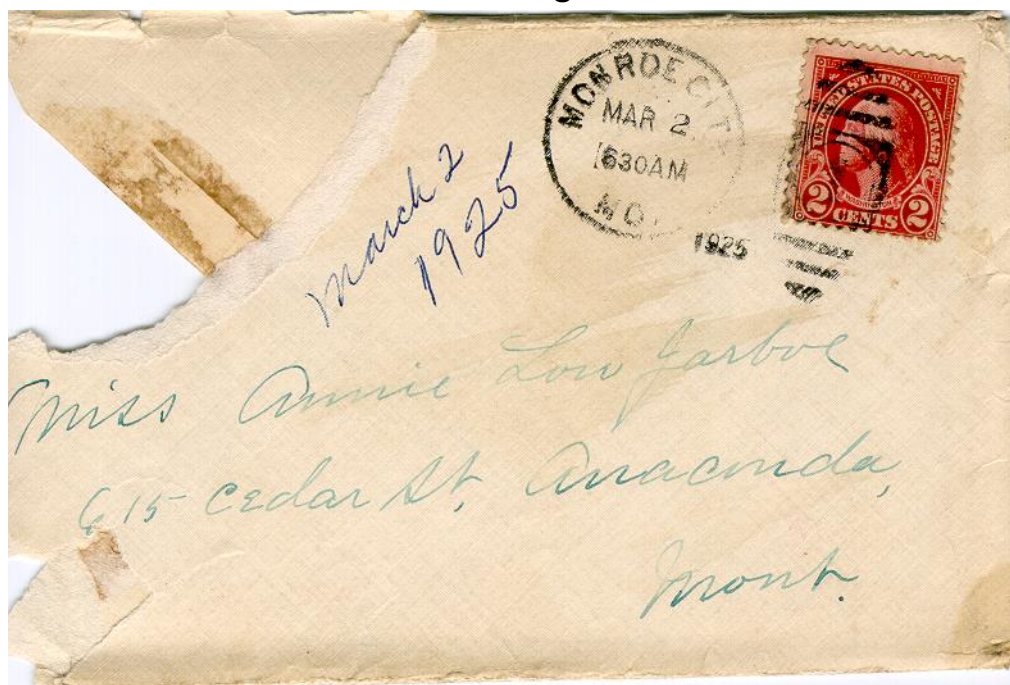 MONROE CITY
MAR 2
630AM
MO.
1925
UNITED STATES POSTAGE
WASHINGTON
2 CENTS 2
March 2
1925
Miss Annie Low Jarboe
615 Cedar St, Anaconda,
Mont.